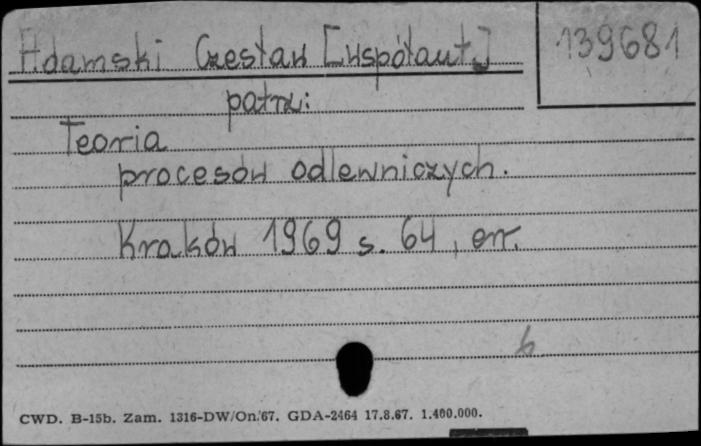 Adamski Czesław [współaut.] 139681
patrz:
Teoria
procesów odlewniczych.
Kraków 1969 s. 64, err.
b
CWD. B-15b. Zam. 1316-DW/On/67. GDA-2464 17.8.67. 1.400.000.